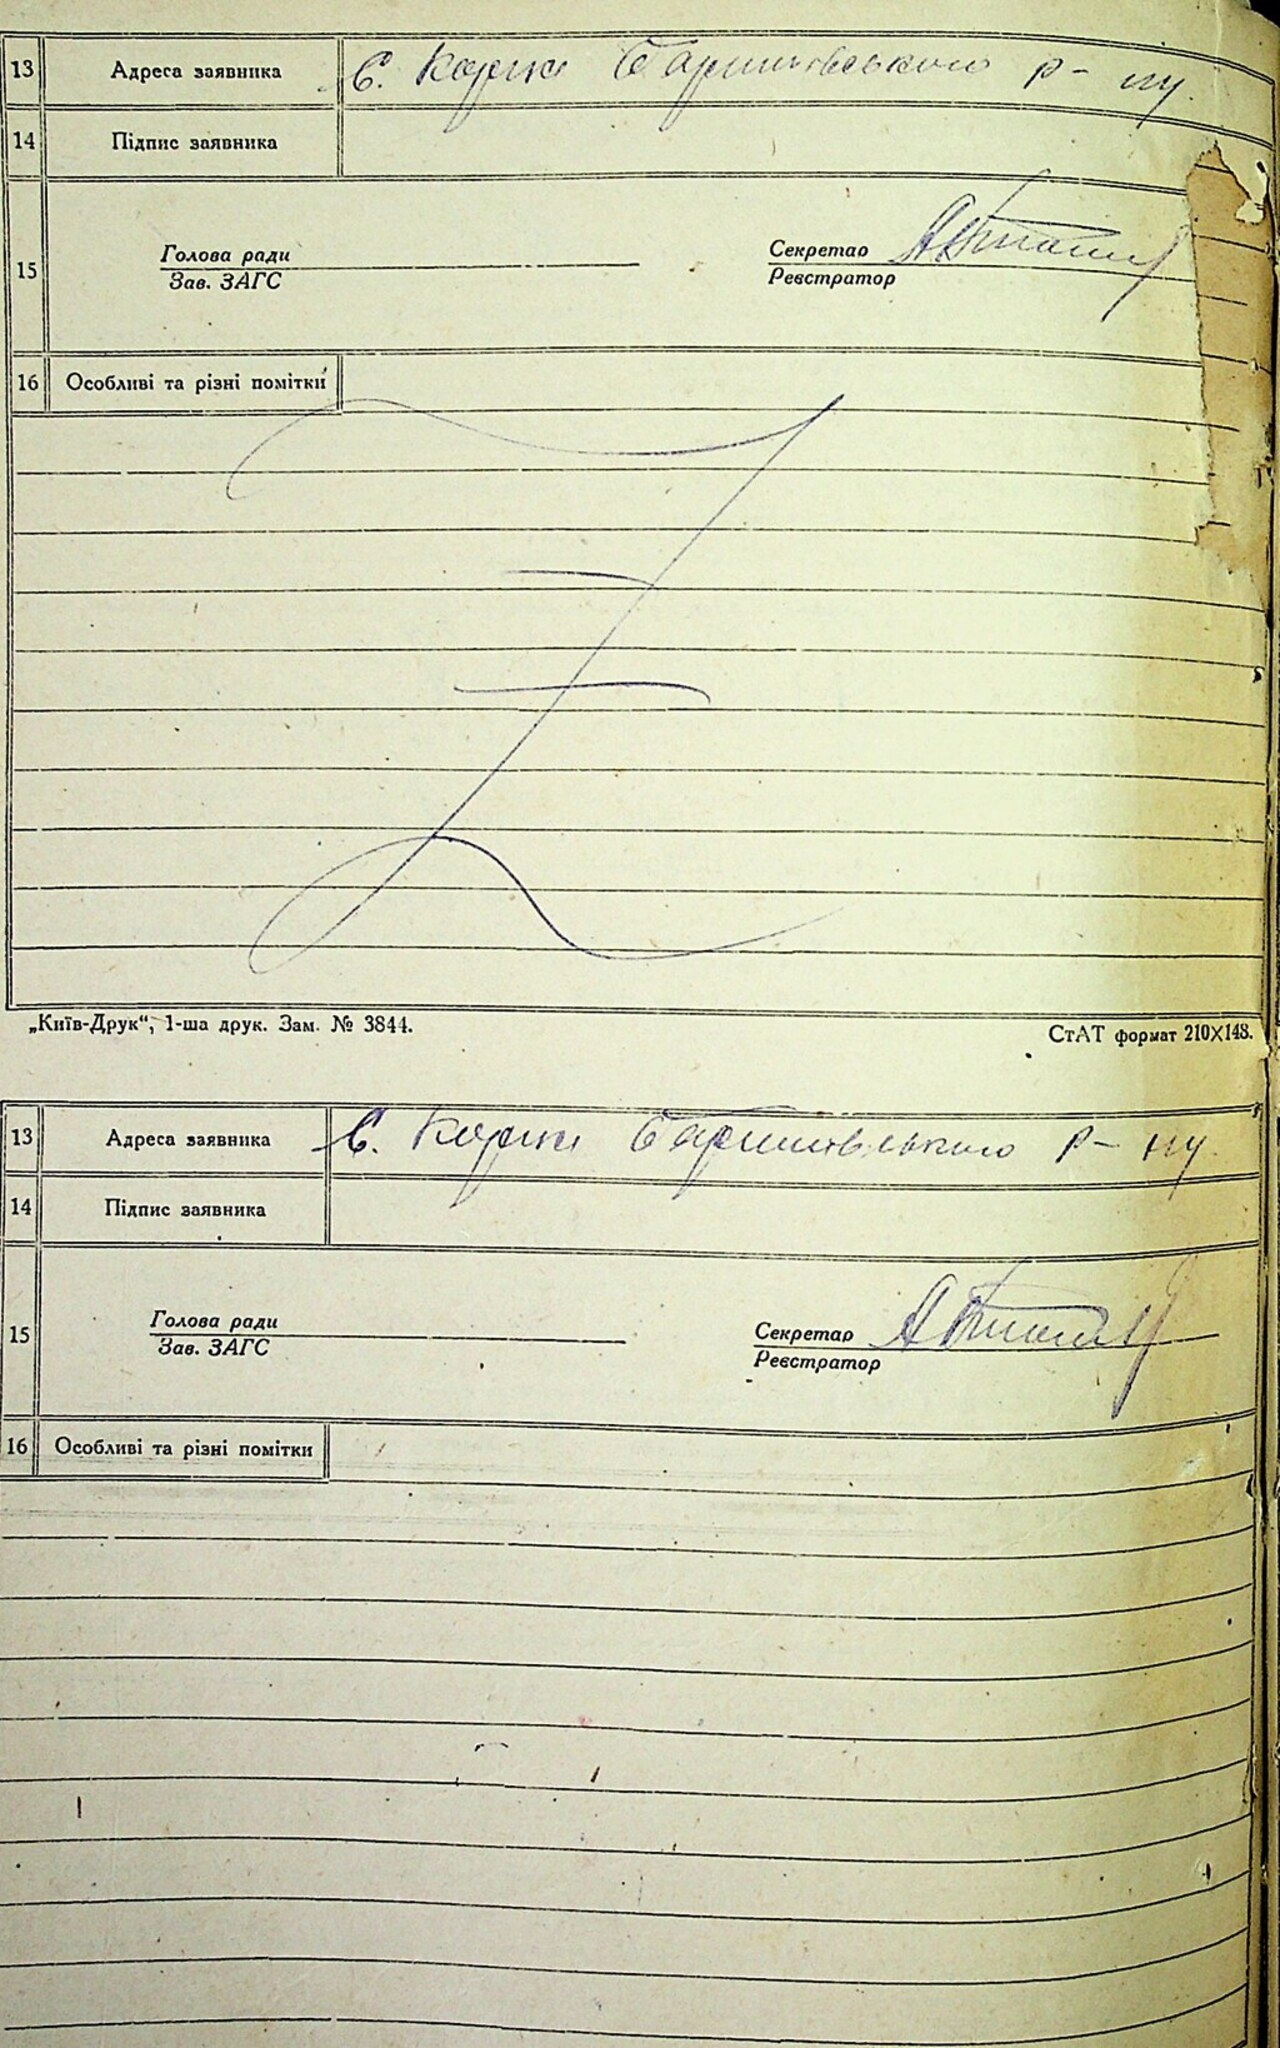 13 Адреса заявника С. Коржі Баришівського р-ну.
14 Підпис заявника
15 Голова ради Секретар
Зав. ЗАГС Реєстратор
16 Особливі та різні помітки
„Київ-Друк“, 1-ша друк. Зам. № 3844. СтАТ формат 210X148.
13 Адреса заявника С. Коржі Баришівського р-ну.
14 Підпис заявника
15 Голова ради Секретар
Зав. ЗАГС Реєстратор
16 Особливі та різні помітки